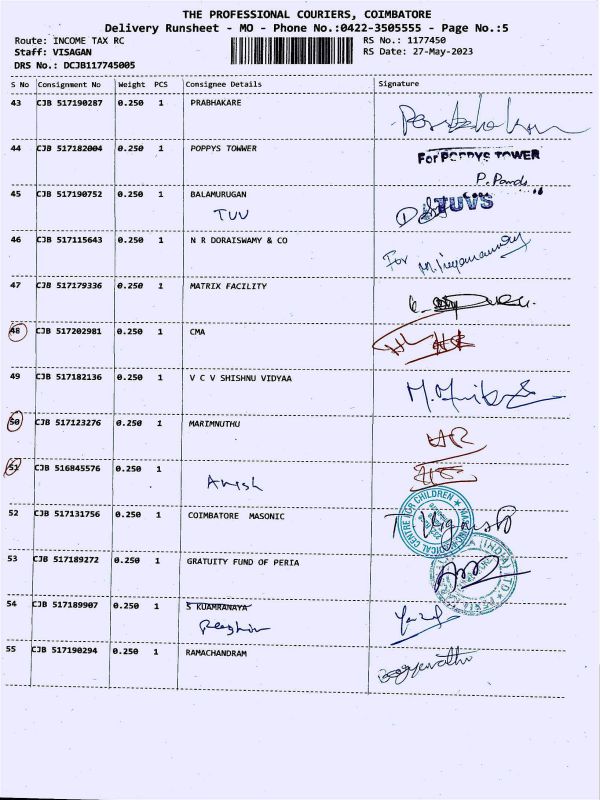 THE PROFESSIONAL COURIERS, COIMBATORE
Delivery Runsheet - MO - Phone No.:0422-3505555 - Page No.:5
Route: INCOME TAX RC RS No.: 1177450
Staff: VISAGAN RS Date: 27-May-2023
DRS No.: DCJB117745005
S No Consignment No Weight PCS Consignee Details Signature
43 CJB 517190287 0.250 1 PRABHAKARE
44 CJB 517182004 0.250 1 POPPYS TOWWER For POPPYS TOWER
P. Pandi
45 CJB 517190752 0.250 1 BALAMURUGAN TUVS
TUV
46 CJB 517115643 0.250 1 N R DORAISWAMY & CO For
47 CJB 517179336 0.250 1 MATRIX FACILITY
48 CJB 517202981 0.250 1 CMA
49 CJB 517182136 0.250 1 V C V SHISHNU VIDYAA
50 CJB 517123276 0.250 1 MARIMNUTHU
51 CJB 516845576 0.250 1
Anish
52 CJB 517131756 0.250 1 COIMBATORE MASONIC
MASONIC MEDICAL CENTRE FOR CHILDREN
53 CJB 517189272 0.250 1 GRATUITY FUND OF PERIA
54 CJB 517189907 0.250 1 S KUAMRANAYA
55 CJB 517190294 0.250 1 RAMACHANDRAM